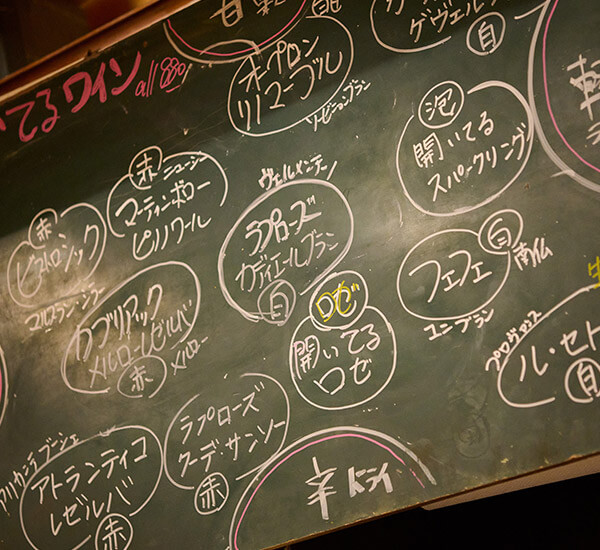 てるワイン all 880
白
ゲヴェルツ
白
オープロン
リノユーブル
ソービニョンブラン
泡
開いてる
スパークリング
赤
ニュージー
マーティンボロー
ピノノワール
ヴェルメンティーノ
ラプローズ
カディエールブラン
白
赤
ピストロシック
マルスラン・シラー
カブリアック
メルローレゼルバ
赤
メルロー
ロゼ
開いてる
ロゼ
フェフェ
白
南仏
ユニブラン
ル・セト
白
アリカンテブーシェ
アトランティコ
レゼルバ
赤
ラプローズ
クーデ・サンソー
赤
辛 ドライ